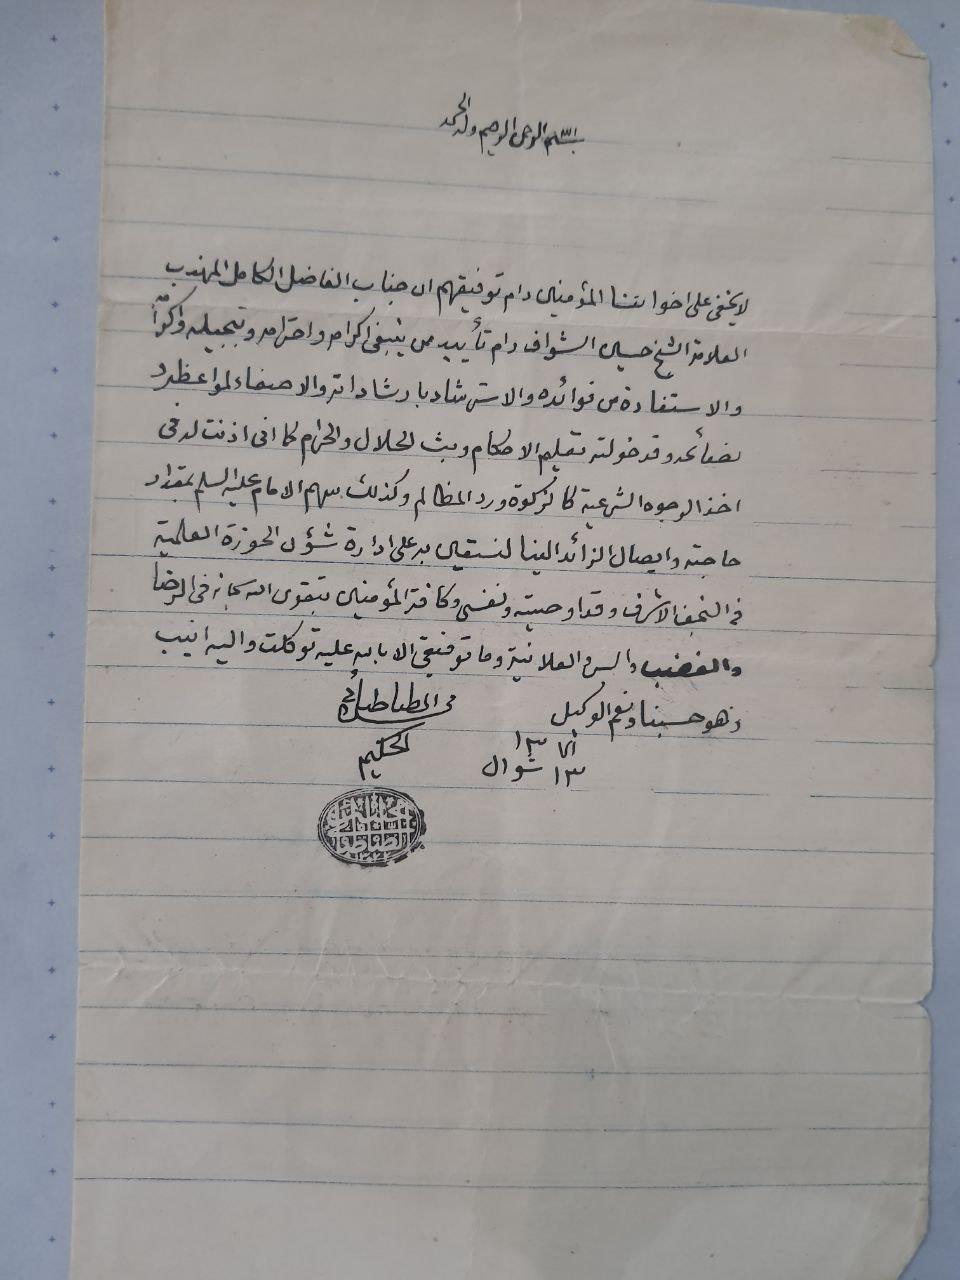 بسم الله الرحمن الرحيم وله الحمد
لا يخفى على اخواننا المؤمنين دام توفيقهم ان جناب الفاضل الكامل المهذب
العلامة الشيخ حسين الشواف دام تأييده ممن ينبغي اكرامه واحترامه وتبجيله
والاستفادة من فوائده والاسترشاد بارشاداته والاصغاء لمواعظه و
نصائحه وقد خولته تعليم الاحكام وبث الحلال والحرام كما اني اذنت له في
اخذ الوجوه الشرعية كالزكوة ورد المظالم وكذلك سهم الامام عليه السلم بمقدار
حاجته وايصال الزائد الينا لنستعين به على ادارة شؤن الحوزة العلمية
في النجف الاشرف وقد اوصيته ونفسي وكافة المؤمنين بتقوى الله سبحانه في الرضا
والغضب والسر والعلانية وما توفيقي الا بالله عليه توكلت واليه انيب
وهو حسبنا ونعم الوكيل
الطباطبائي
الحكيم
١٣ شوال